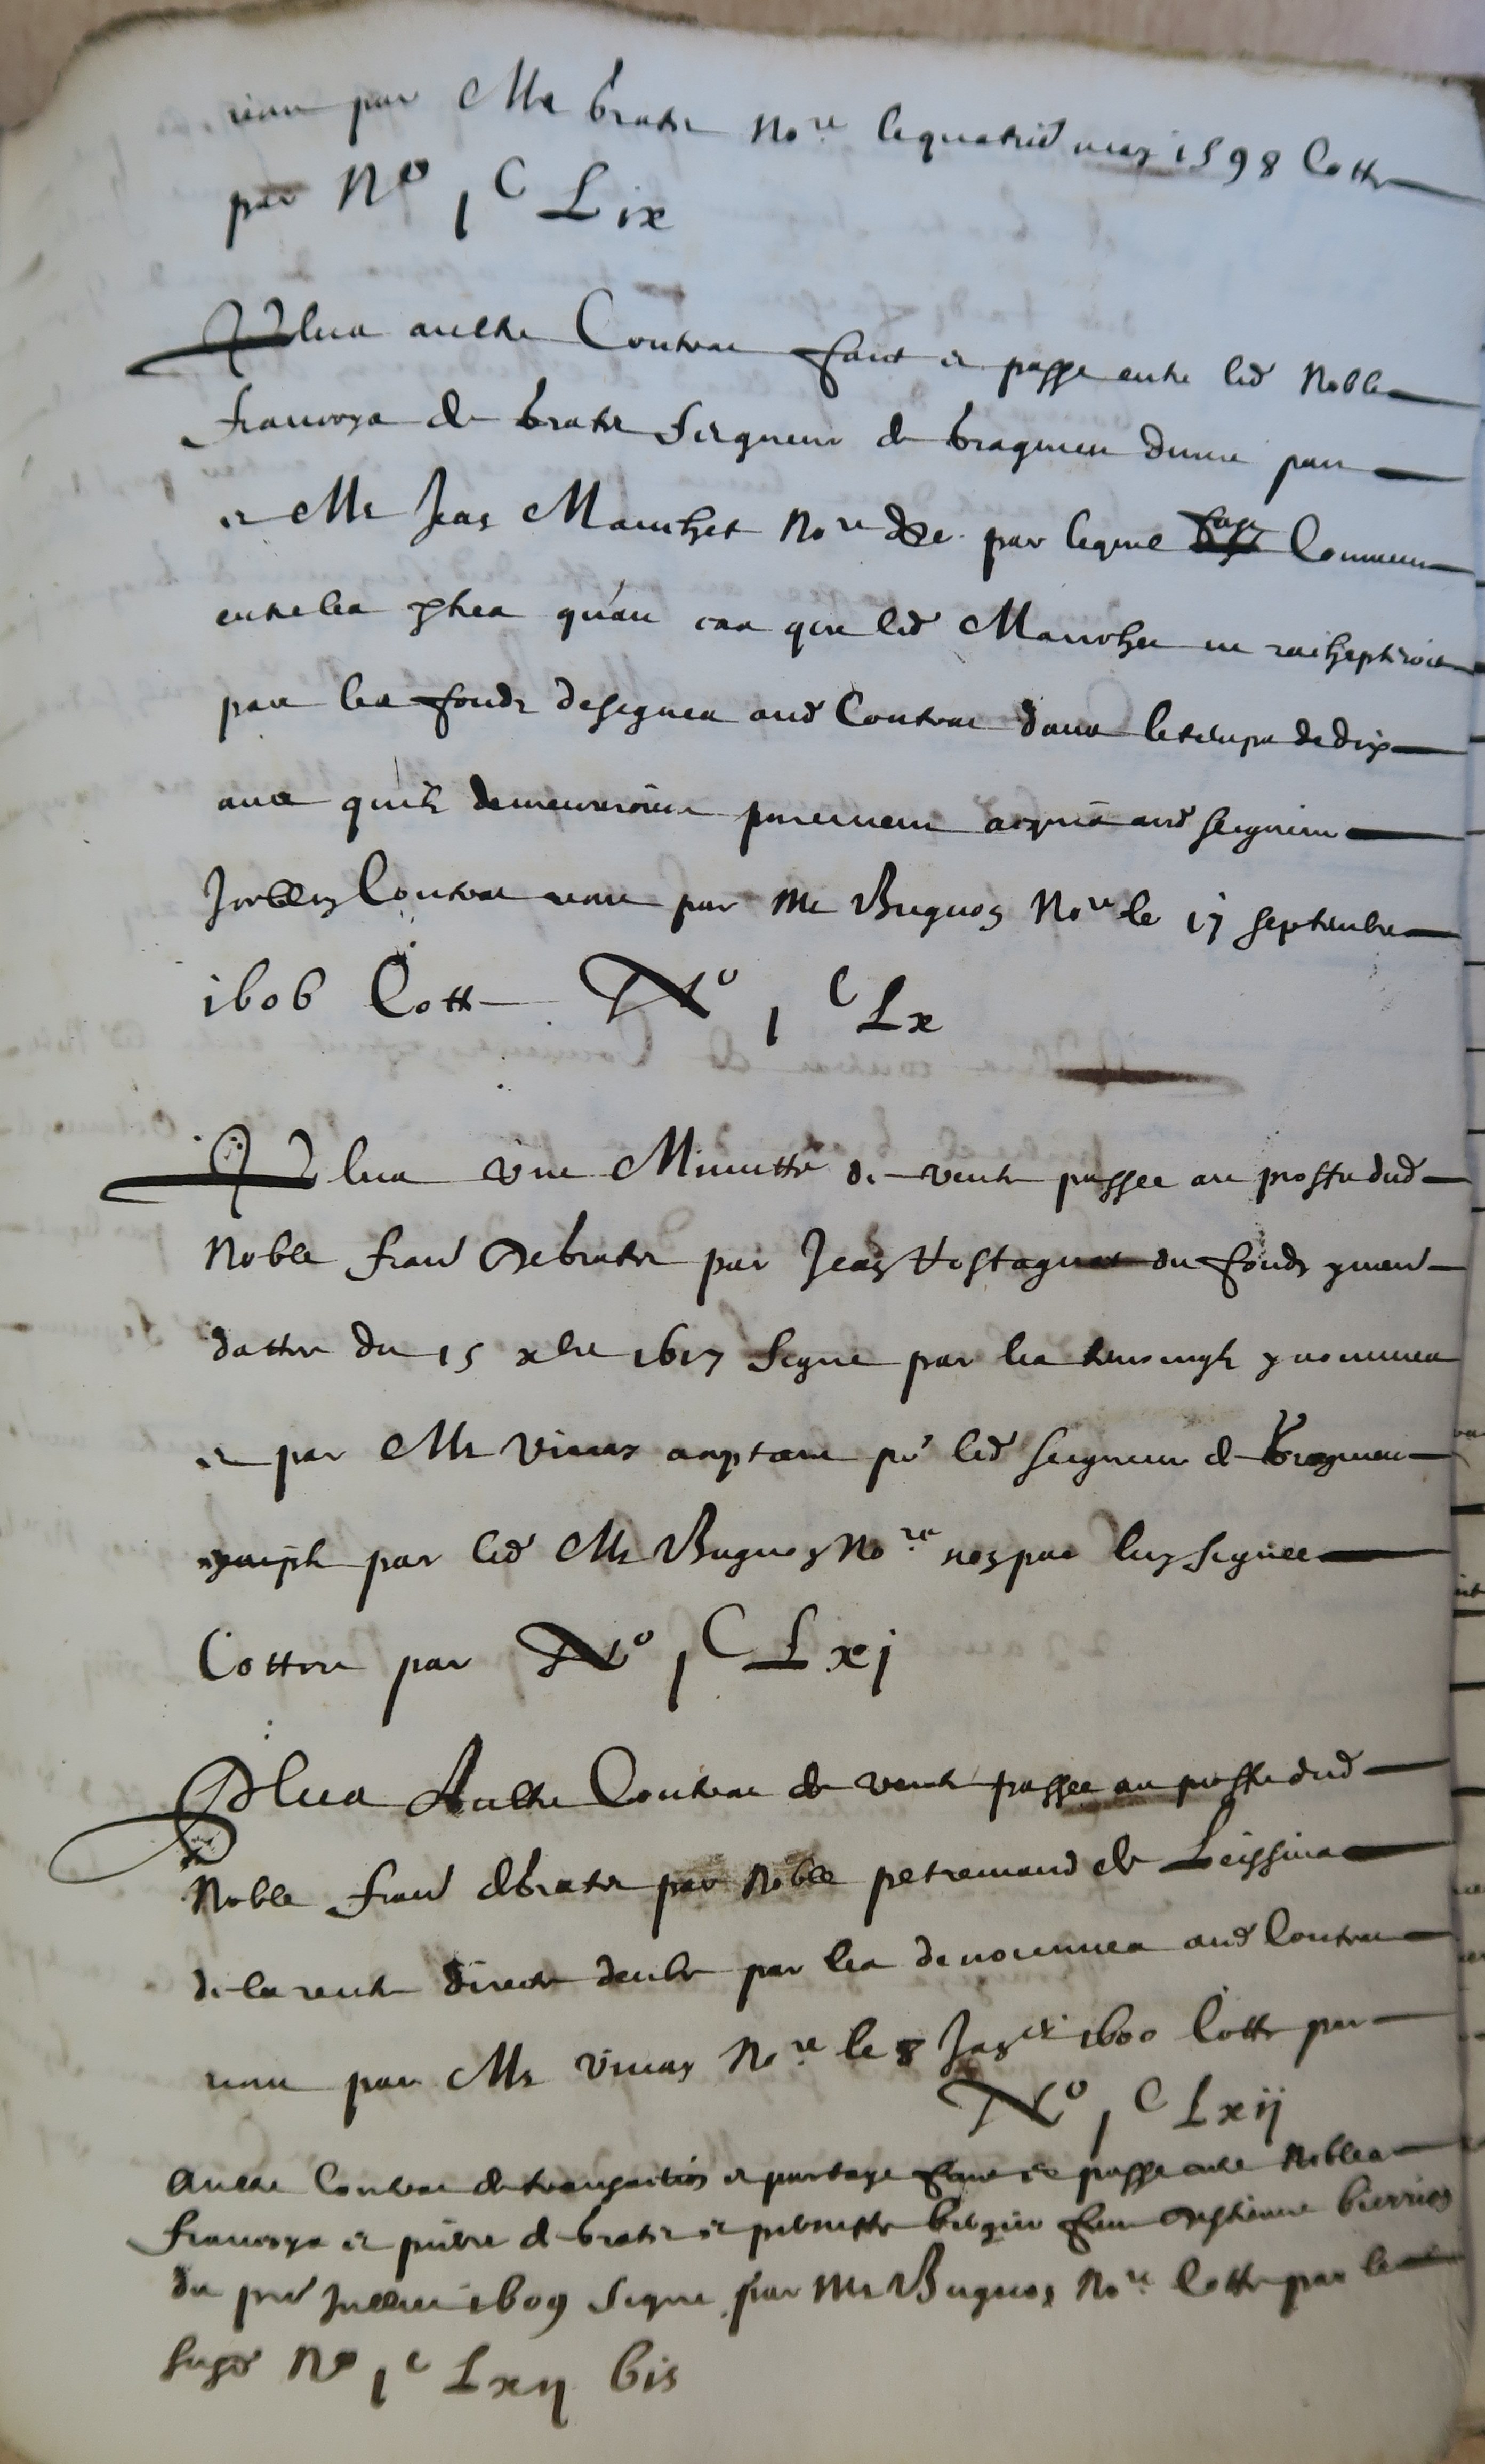 par Me brati Nore le quatrie may 1598 Cotté
par No 1 C Lix
Plus aultre Contrac faict et passe entre led Noble
francoys de brati seigneur de bragneu dune part
et Me Jean Manchet Nore par lequel Convenu
entre les pties qu'au cas que led Manchet ne rachepteroit
pas les fonds designes aud Contrac dans le temps de dix
ans quils demeureroint purement acquis aud seigneur
Contrac receu par Me Buguoz Nore le 17 septembre
1606 Cotté No 1 C Lx
Plus une Minutte de vente passee au proffit dud
Noble frans de brati par Jean du fonds y
datter du 15 xbre 1617 signe par les tesmoingts y nommes
et par Me Vinay acceptant pr led seigneur de bragneu
par led Me Buguoz Nore non par luy signee
Cottee par No 1 C Lxj
Plus Aultre Contrac de vente passee au proffit dud
Noble frans de brati par Noble petremand de Leissina
de la rente directe deube par les denommes aud Contrac
receu par Me Vinay Nore le 8 Janer 1600 Cotté par
No 1 C Lxij
Aultre Contrac de transaction et partage faict et passe entre Nobles
francoys et pierre de brati et
du pre Juillet 1609 signe par Me Buguoz Nore Cotté par le
susd No 1 c Lxij bis